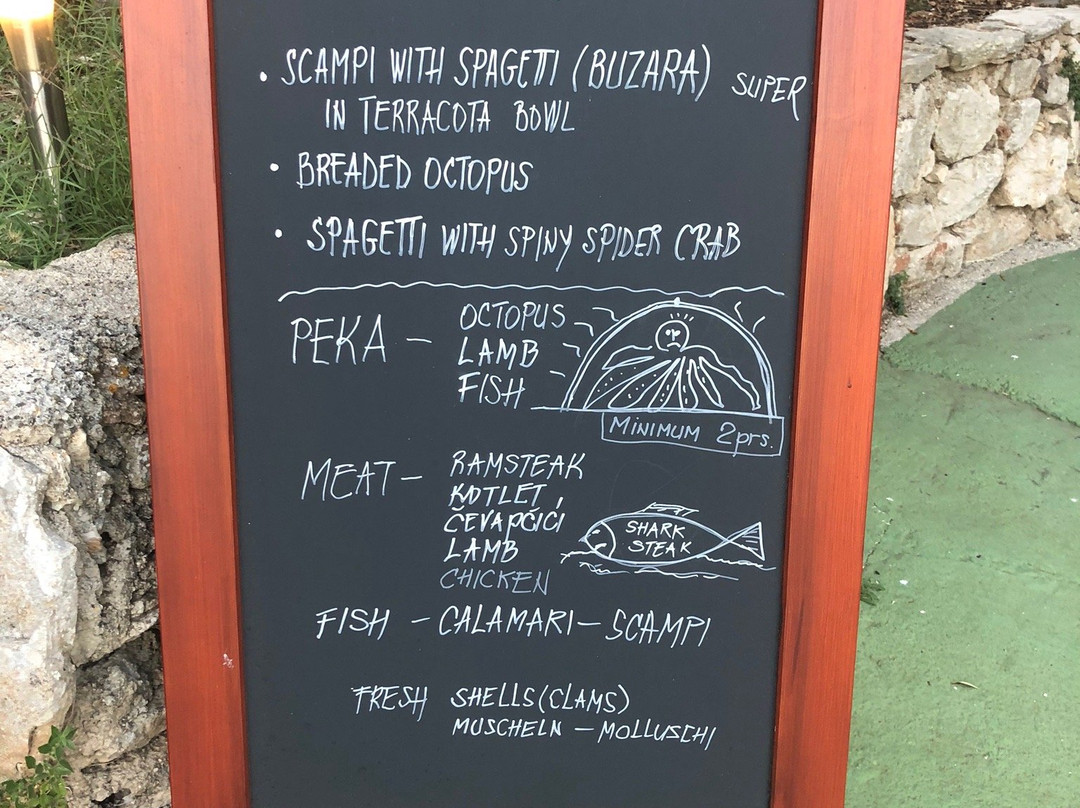 • SCAMPI WITH SPAGETTI (BUZARA) SUPER
IN TERRACOTA BOWL
• BREADED OCTOPUS
• SPAGETTI WITH SPINY SPIDER CRAB
PEKA – OCTOPUS
LAMB
FISH
MINIMUM 2prs.
MEAT – RAMSTEAK
KOTLET
ČEVAPČIĆI
LAMB
CHICKEN
SHARK
STEAK
FISH – CALAMARI – SCAMPI
FRESH SHELLS (CLAMS)
MUSCHELN – MOLLUSCHI